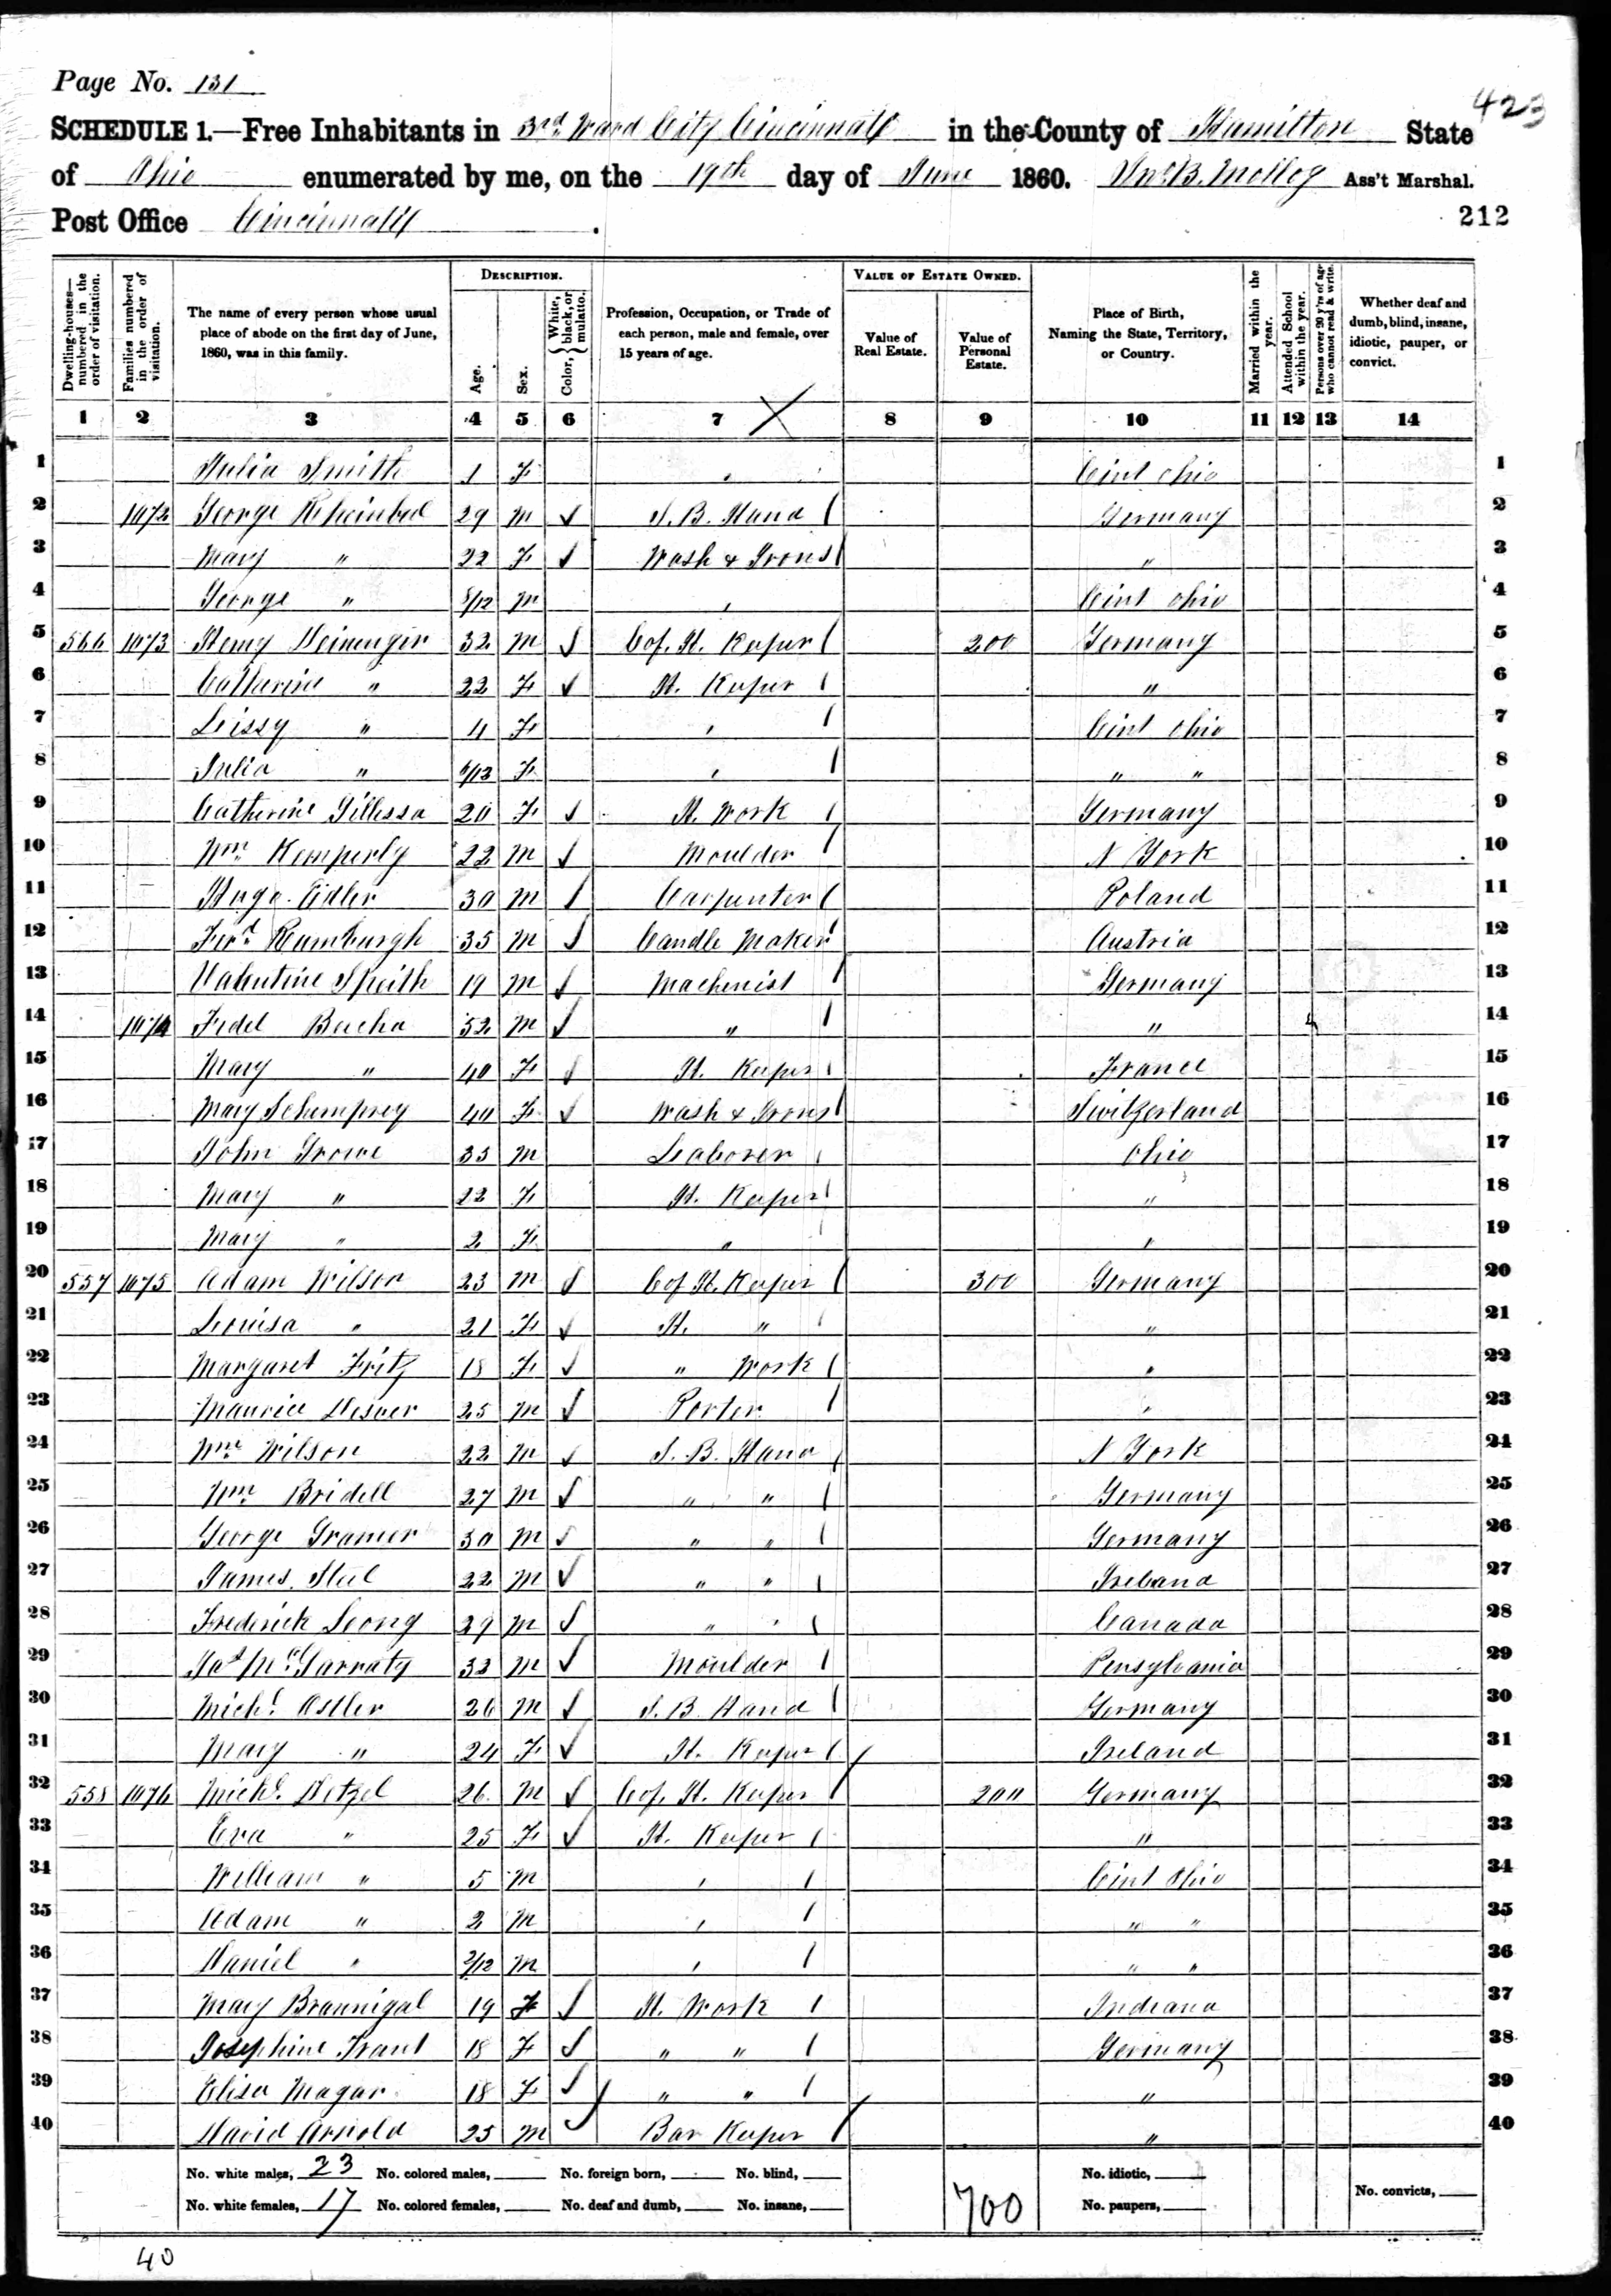 Page No. 131
423
SCHEDULE 1.—Free Inhabitants in 3rd Ward City Cincinnati in the County of Hamilton State
of Ohio enumerated by me, on the 19th day of June 1860. Ass't Marshal.
Post Office Cincinnati.
212
Dwelling-houses—numbered in the order of visitation.
Families numbered in the order of visitation.
The name of every person whose usual place of abode on the first day of June, 1860, was in this family.
DESCRIPTION.
Age.
Sex.
Color, { White, black, or mulatto.
Profession, Occupation, or Trade of each person, male and female, over 15 years of age.
VALUE OF ESTATE OWNED.
Value of Real Estate.
Value of Personal Estate.
Place of Birth, Naming the State, Territory, or Country.
Married within the year.
Attended School within the year.
Persons over 20 y'rs of age who cannot read & write.
Whether deaf and dumb, blind, insane, idiotic, pauper, or convict.
1 2 3 4 5 6 7 8 9 10 11 12 13 14
1 Julia Smith 1 F Cint Ohio 1
2 1072 George 29 M S. B. Hand Germany 2
3 Mary " 22 F Wash & Irons " 3
4 George " 8/12 M Cint Ohio 4
5 566 1073 Henry Deininger 32 M Cof. H. Keeper 200 Germany 5
6 Catharine " 22 F H. Keeper " 6
7 Lissy " 4 F Cint Ohio 7
8 Julia " 6/12 F " " 8
9 Catherine 20 F H. Work Germany 9
10 Wm Kemperly 22 M Moulder N York 10
11 Hugo Edler 30 M Carpenter Poland 11
12 Ferd Rumburgh 35 M Candle Maker Austria 12
13 Valentine Speith 19 M Machenist Germany 13
14 1074 Fidel Bucha 52 M " " 14
15 Mary " 40 F H. Keeper France 15
16 Mary 40 F Wash & Irons Switzerland 16
17 John 35 M Laborer Ohio 17
18 Mary " 22 F H. Keeper " 18
19 Mary " 2 F " 19
20 557 1075 Adam Wilson 23 M Cof H. Keeper 300 Germany 20
21 Louisa " 21 F H. " " 21
22 Margaret Fritz 18 F " Work " 22
23 Maurice 25 M Porter " 23
24 Wm Wilson 22 M S. B. Hand N York 24
25 Wm Bridell 27 M " " Germany 25
26 George Gramer 30 M " " Germany 26
27 James Steel 22 M " " Ireland 27
28 Frederick Leong 29 M " " Canada 28
29 Jas McGarraty 33 M Moulder Pensylvania 29
30 Michl Ostler 26 M S. B. Hand Germany 30
31 Mary " 24 F H. Keeper Ireland 31
32 558 1076 Michl Detzel 26 M Cof. H. Keeper 200 Germany 32
33 Eva " 25 F H. Keeper " 33
34 William " 5 M Cint Ohio 34
35 Adam " 2 M " " 35
36 Daniel " 2/12 M " " 36
37 Mary Brannigal 19 F H. Work Indiana 37
38 Josephine Trant 18 F " " Germany 38
39 Elisa Magar 18 F " " " 39
40 David Arnold 25 M Bar Keeper " 40
No. white males, 23 No. colored males, No. foreign born, No. blind, No. idiotic,
No. white females, 17 No. colored females, No. deaf and dumb, No. insane, 700 No. paupers, No. convicts,
40